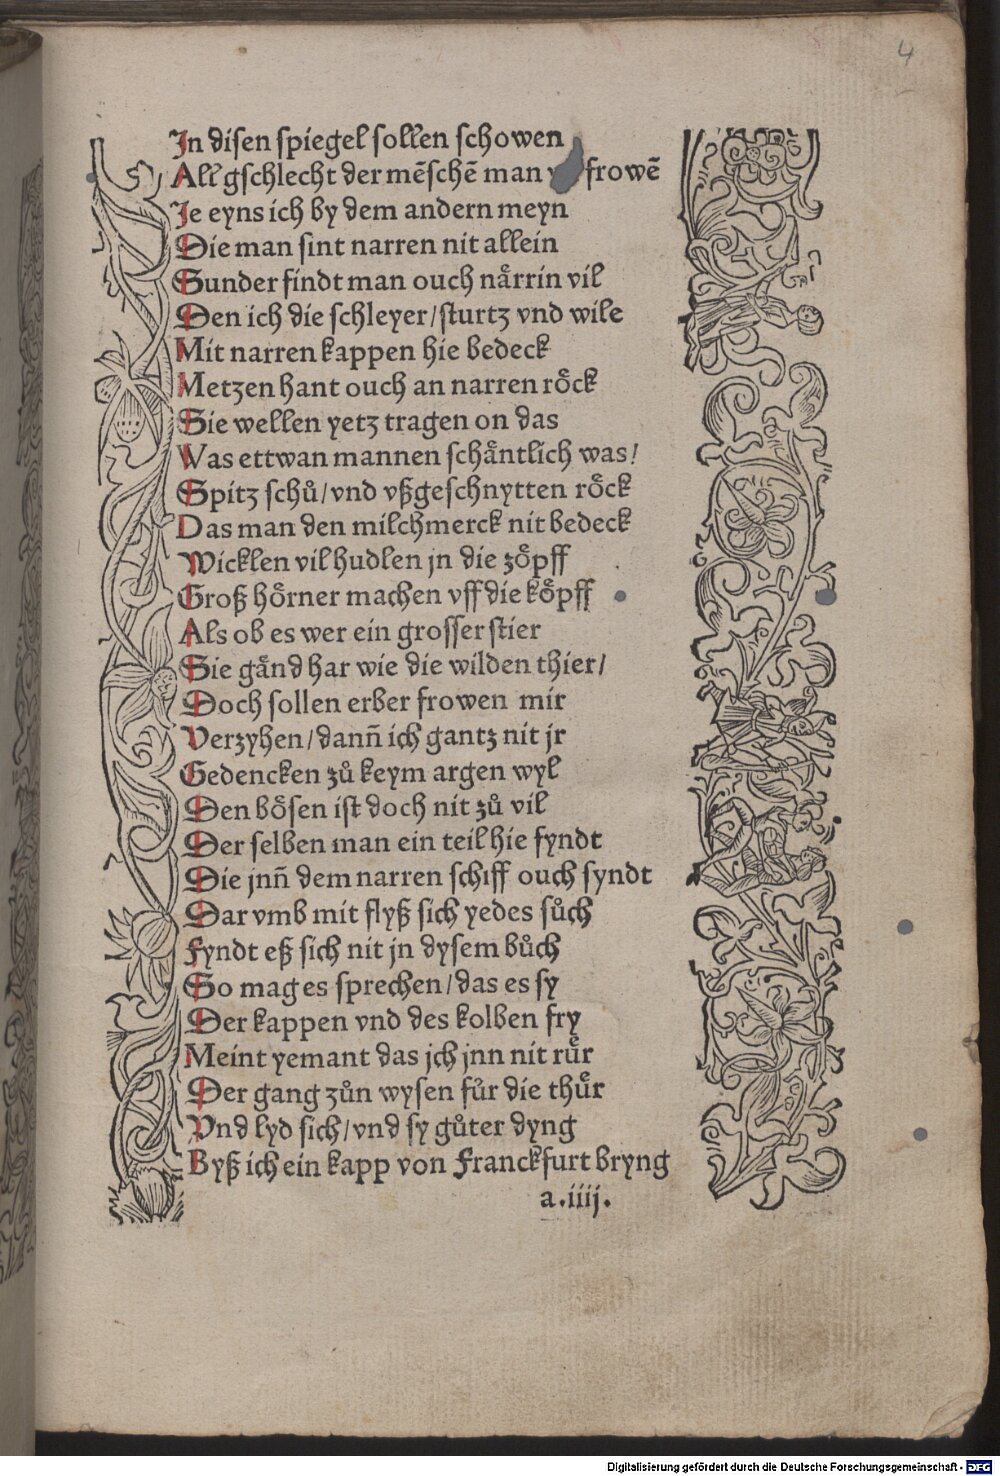 4
In disen spiegel sollen schowen
All gschlecht der mēschē man frowē
Je eyns ich by dem andern meyn
Die man sint narren nit allein
Sunder findt man ouch naͤrrin vil
Den ich die schleyer/sturtz vnd wile
Mit narren kappen hie bedeck
Metzen hant ouch an narren roͤck
Sie wellen yetz tragen on das
Was ettwan mannen schaͤntlich was/
Spitz schuͦ/vnd vßgeschnytten roͤck
Das man den milchmerck nit bedeck
Wicklen vil hudlen jn die zoͤpff
Groß hoͤrner machen vff die koͤpff
Als ob es wer ein grosser stier
Sie gaͤnd har wie die wilden thier/
Doch sollen erber frowen mir
Verzyhen/dann̄ ich gantz nit jr
Gedencken zuͦ keym argen wyl
Den boͤsen ist doch nit zuͦ vil
Der selben man ein teil hie fyndt
Die jnn̄ dem narren schiff ouch syndt
Dar vmb mit flyß sich yedes suͦch
Fyndt eß sich nit jn dysem buͦch
So mag es sprechen/das es sy
Der kappen vnd des kolben fry
Meint yemant das jch jnn nit ruͤr
Der gang zuͦn wysen fuͦr die thuͤr
Vnd lyd sich/vnd sy guͦter dyng
Byß ich ein kapp von Franckfurt bryng
a.iiij.
Digitalisierung gefördert durch die Deutsche Forschungsgemeinschaft - DFG